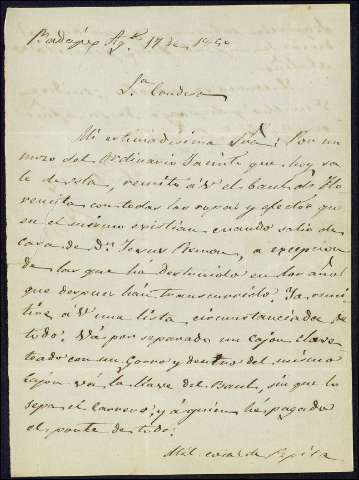 Badajoz Ag.to 17 de
Sra Condesa
Mi estimadisima Sra: Por un
mozo del Ordinario Jacinto que hoy sa
le de esta, remito á V el baul de Flo
rencita con todas las ropas y efectos que
en el mismo existian cuando salio de
casa de Dn Jesus Remon, a excepcion
de las que há destruido en dos años
que despues hán transcurrido. Ya remi
tire á V una lista circunstanciada de
todo. Vá por separado un cajon clave
teado con un Gorro y dentro del mismo
Cajon vá la llave del Baul, sin que lo
sepa el Carrero: y á quien hé pagado
el porte de todo:
Mil cosas de Pepita